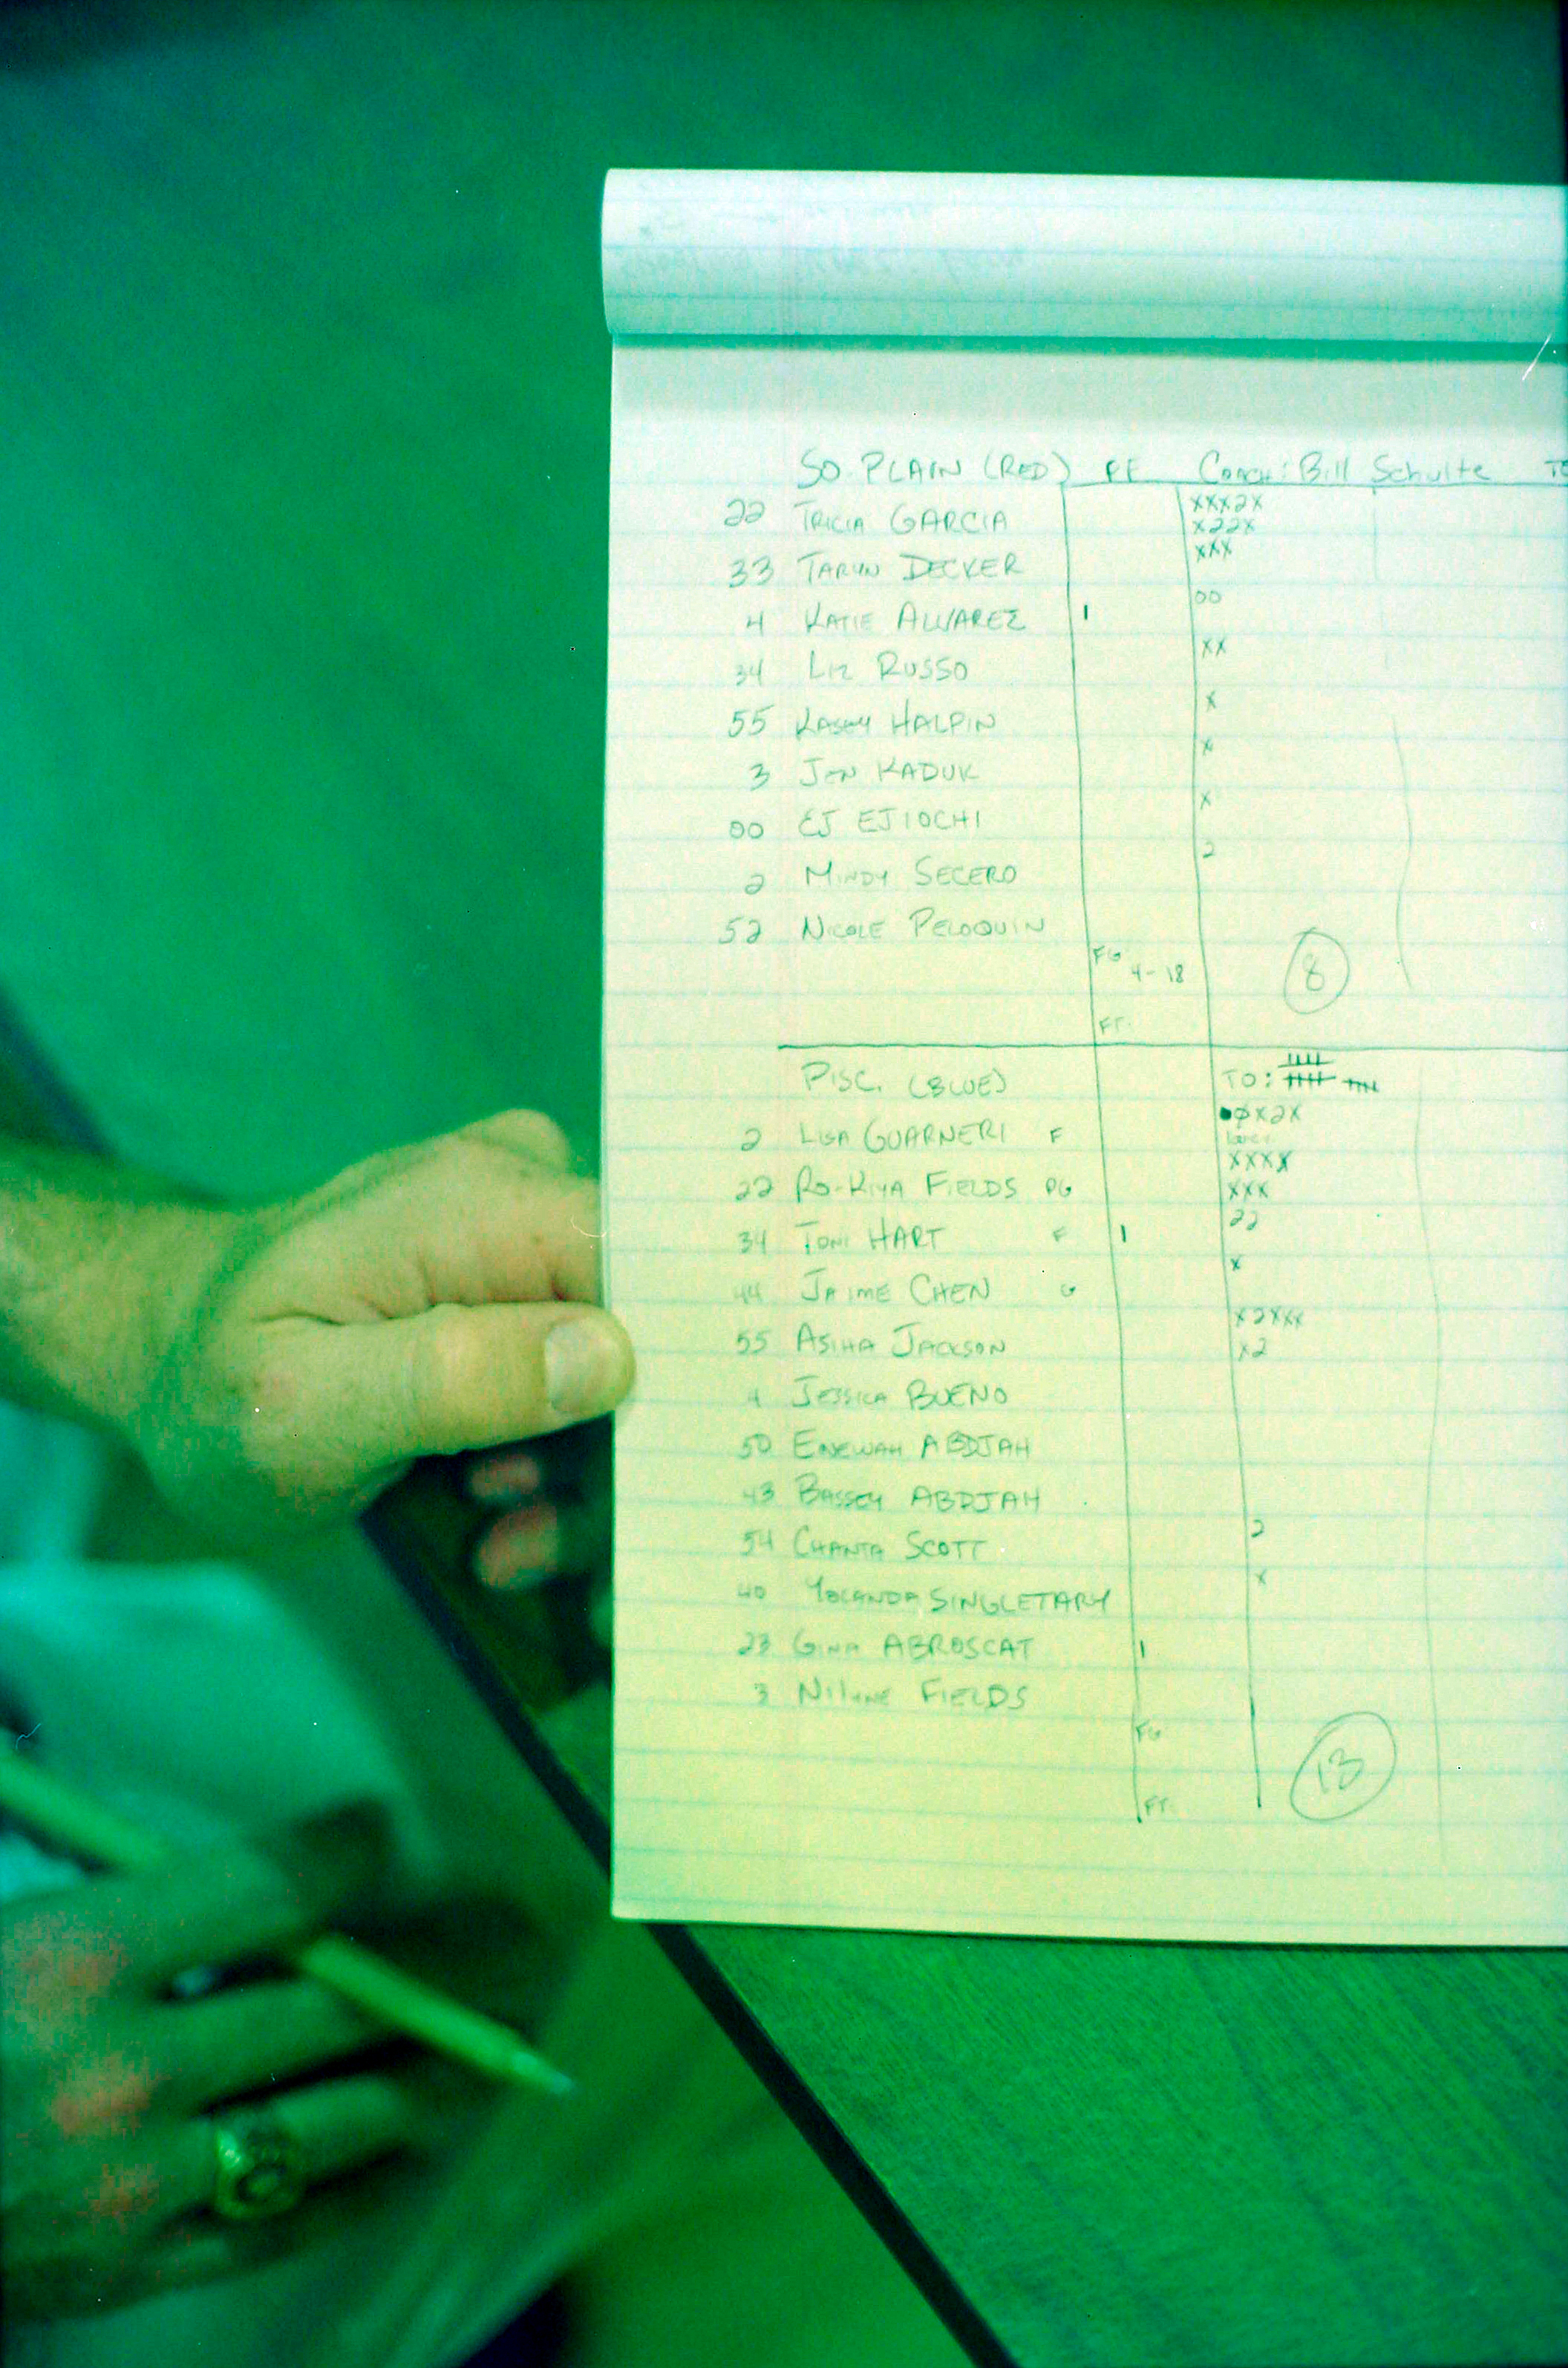 SO. PLAIN (RED) PF Coach: Bill Schulte
22 TRICIA GARCIA XXX2X
X22X
33 TARYN DECKER XXX
4 KATIE ALVAREZ 1 00
34 LIZ RUSSO XX
55 KASEY HALPIN X
3 JEN KADUK X
00 EJ EJIOCHI X
2 MINDY SECERO 2
52 NICOLE PELOQUIN
FG 4-18 8
FT.
PISC. (BLUE) TO:
2 LISA GUARNERI F X2X
22 RO-KIYA FIELDS PG XXXX
XXX
34 TONI HART F 1 22
44 JAIME CHEN G X
55 ASIHA JACKSON X2XXX
4 JESSICA BUENO X2
50 ENEWAH ABDJAH
43 BASSEY ABDJAH
54 CHANTA SCOTT 2
40 YOLANDA SINGLETARY X
23 GINA ABROSCAT 1
3 FIELDS
FG 13
FT.